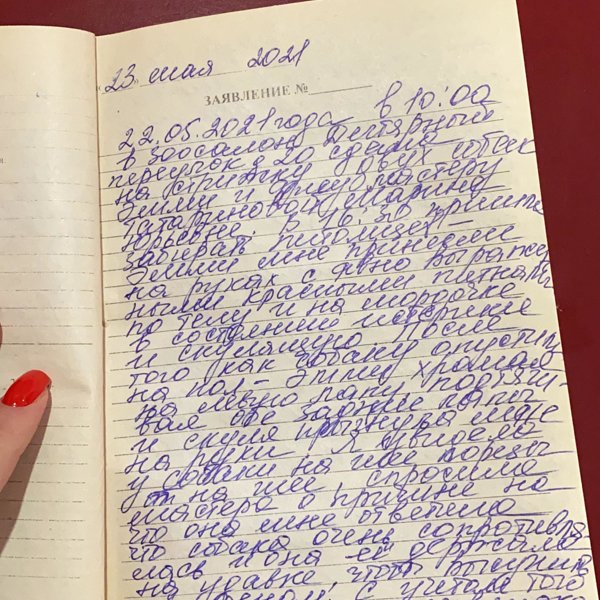 "23" мая 2021
ЗАЯВЛЕНИЕ №
22.05.2021 года в 10:00
в зоосалон Дегтярный
переулок д 20 сдала
на стрижку двух собак
Эмми и мастеру
Татариновой Марине
Юрьевне. В 16:20 пришла
забирать питомцев
Эмми мне принесли
на руках с явно выражен
ными красными пятнами
по телу и на мордочке
в состоянии истерики
и скулящую. После
того как собаку опустили
на пол - Эмми хромала
на левую лапу подтяги-
вая обе задние лапы
и скуля прыгнула мне
на руки. Я увидела
у собаки на шее порезы
на шее спросила
мастера о причине на
что она мне ответила
что собака очень сопротивля
лась и она её держала
на удавке, чтоб высушить
феном, с учетом того